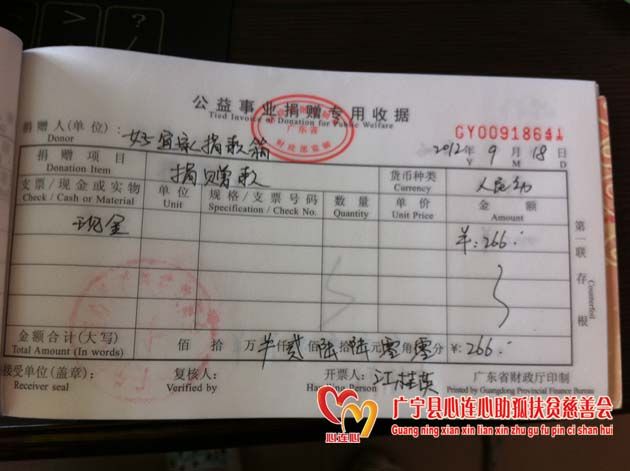 公益事业捐赠专用收据
Tied Invoice of Donation for Public Welfare
广东省
财政部监制
捐赠人(单位): 好宜家捐款箱
Donor
GY00918641
2012年 9月 18日
Y M D
捐赠项目 捐赠款 货币种类 人民币
Donation Item Currency
支票/现金或实物 单位 规格/支票号码 数量 单价 金额
Check / Cash or Material Unit Specification / Check No. Quantity Unit Price Amount
现金 ¥:266.
第一联 存根
Counterfoil
金额合计(大写) 佰 拾 万 仟 贰佰 陆拾 陆元 零角 零分 ¥:266.
Total Amount (In words)
接受单位(盖章): 复核人: 开票人: 江桂英 广东省财政厅印制
Receiver seal Verified by Handling Person Printed by Guangdong Provincial Finance Bureau
心连心
广宁县心连心助孤扶贫慈善会
Guang ning xian xin lian xin zhu gu fu pin ci shan hui